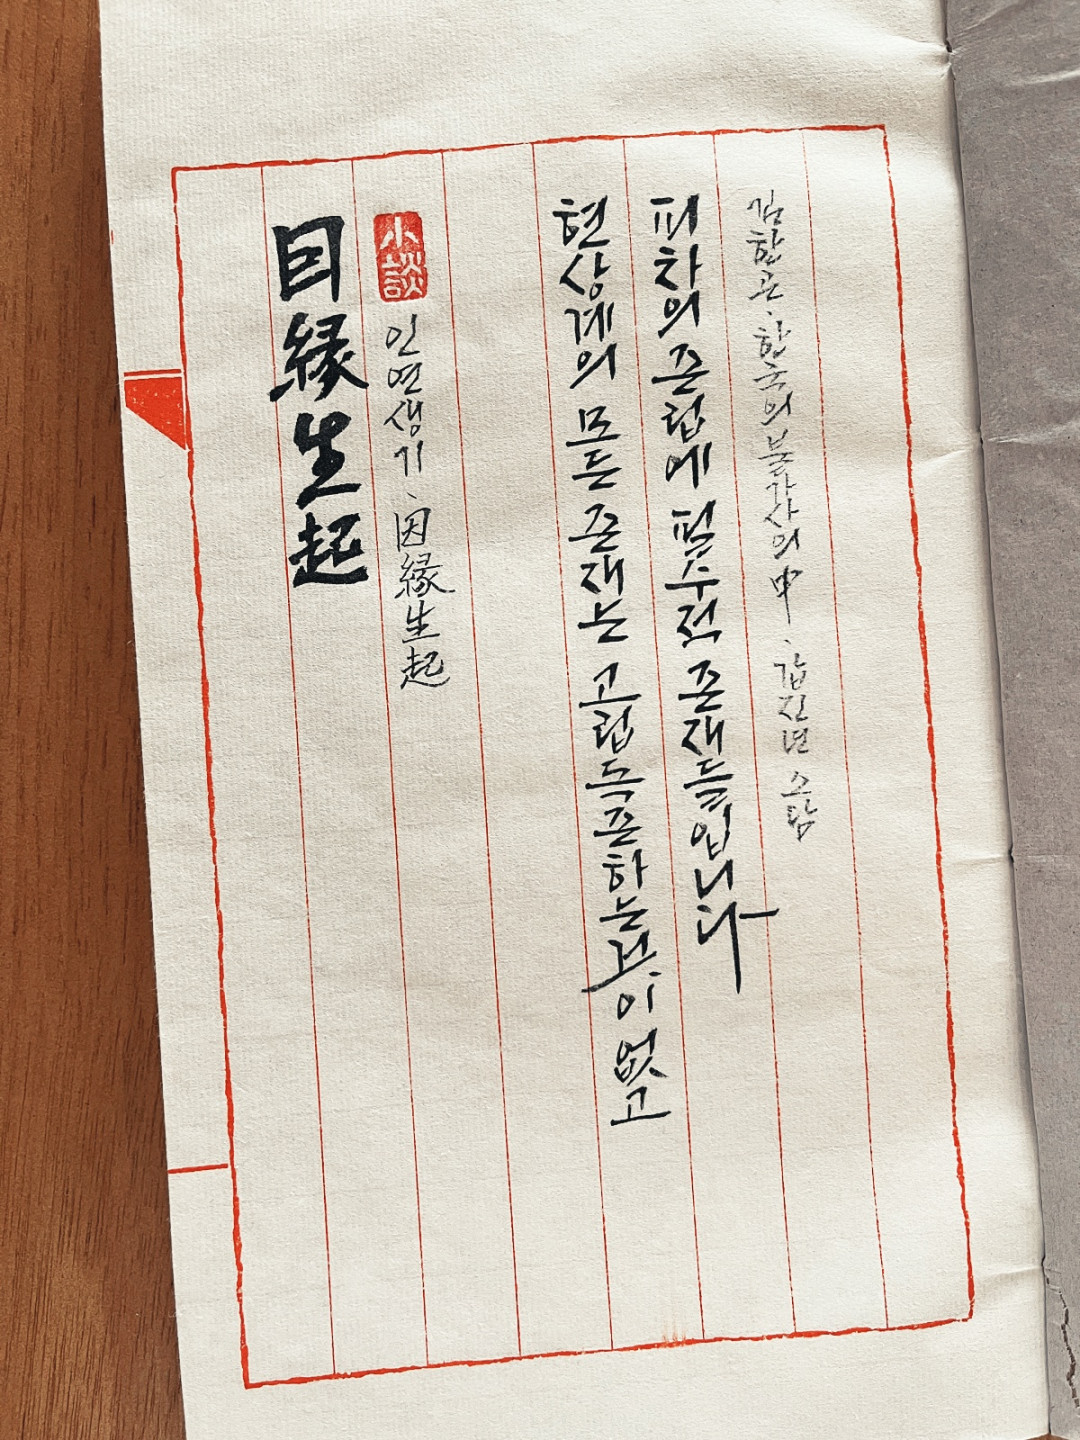 因縁生起
小談
인연생기、因縁生起
현상계의 모든 존재는 고립독존하는 법이 없고
피차의 존립에 필수적 존재들입니다
김한곤、한국의 불가사의 中、갑진년 소담